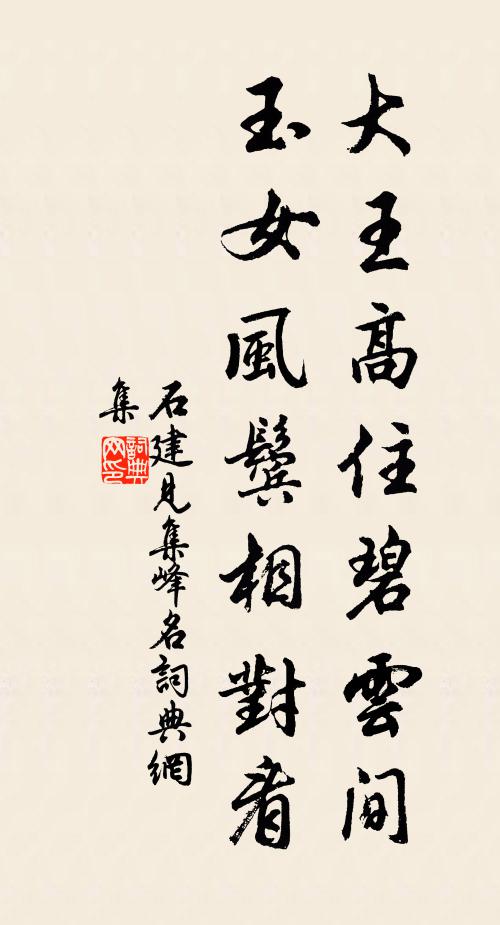 大王高住碧雲間
玉女風鬟相對看
石建見集峰名詞典網
集
詞典網印